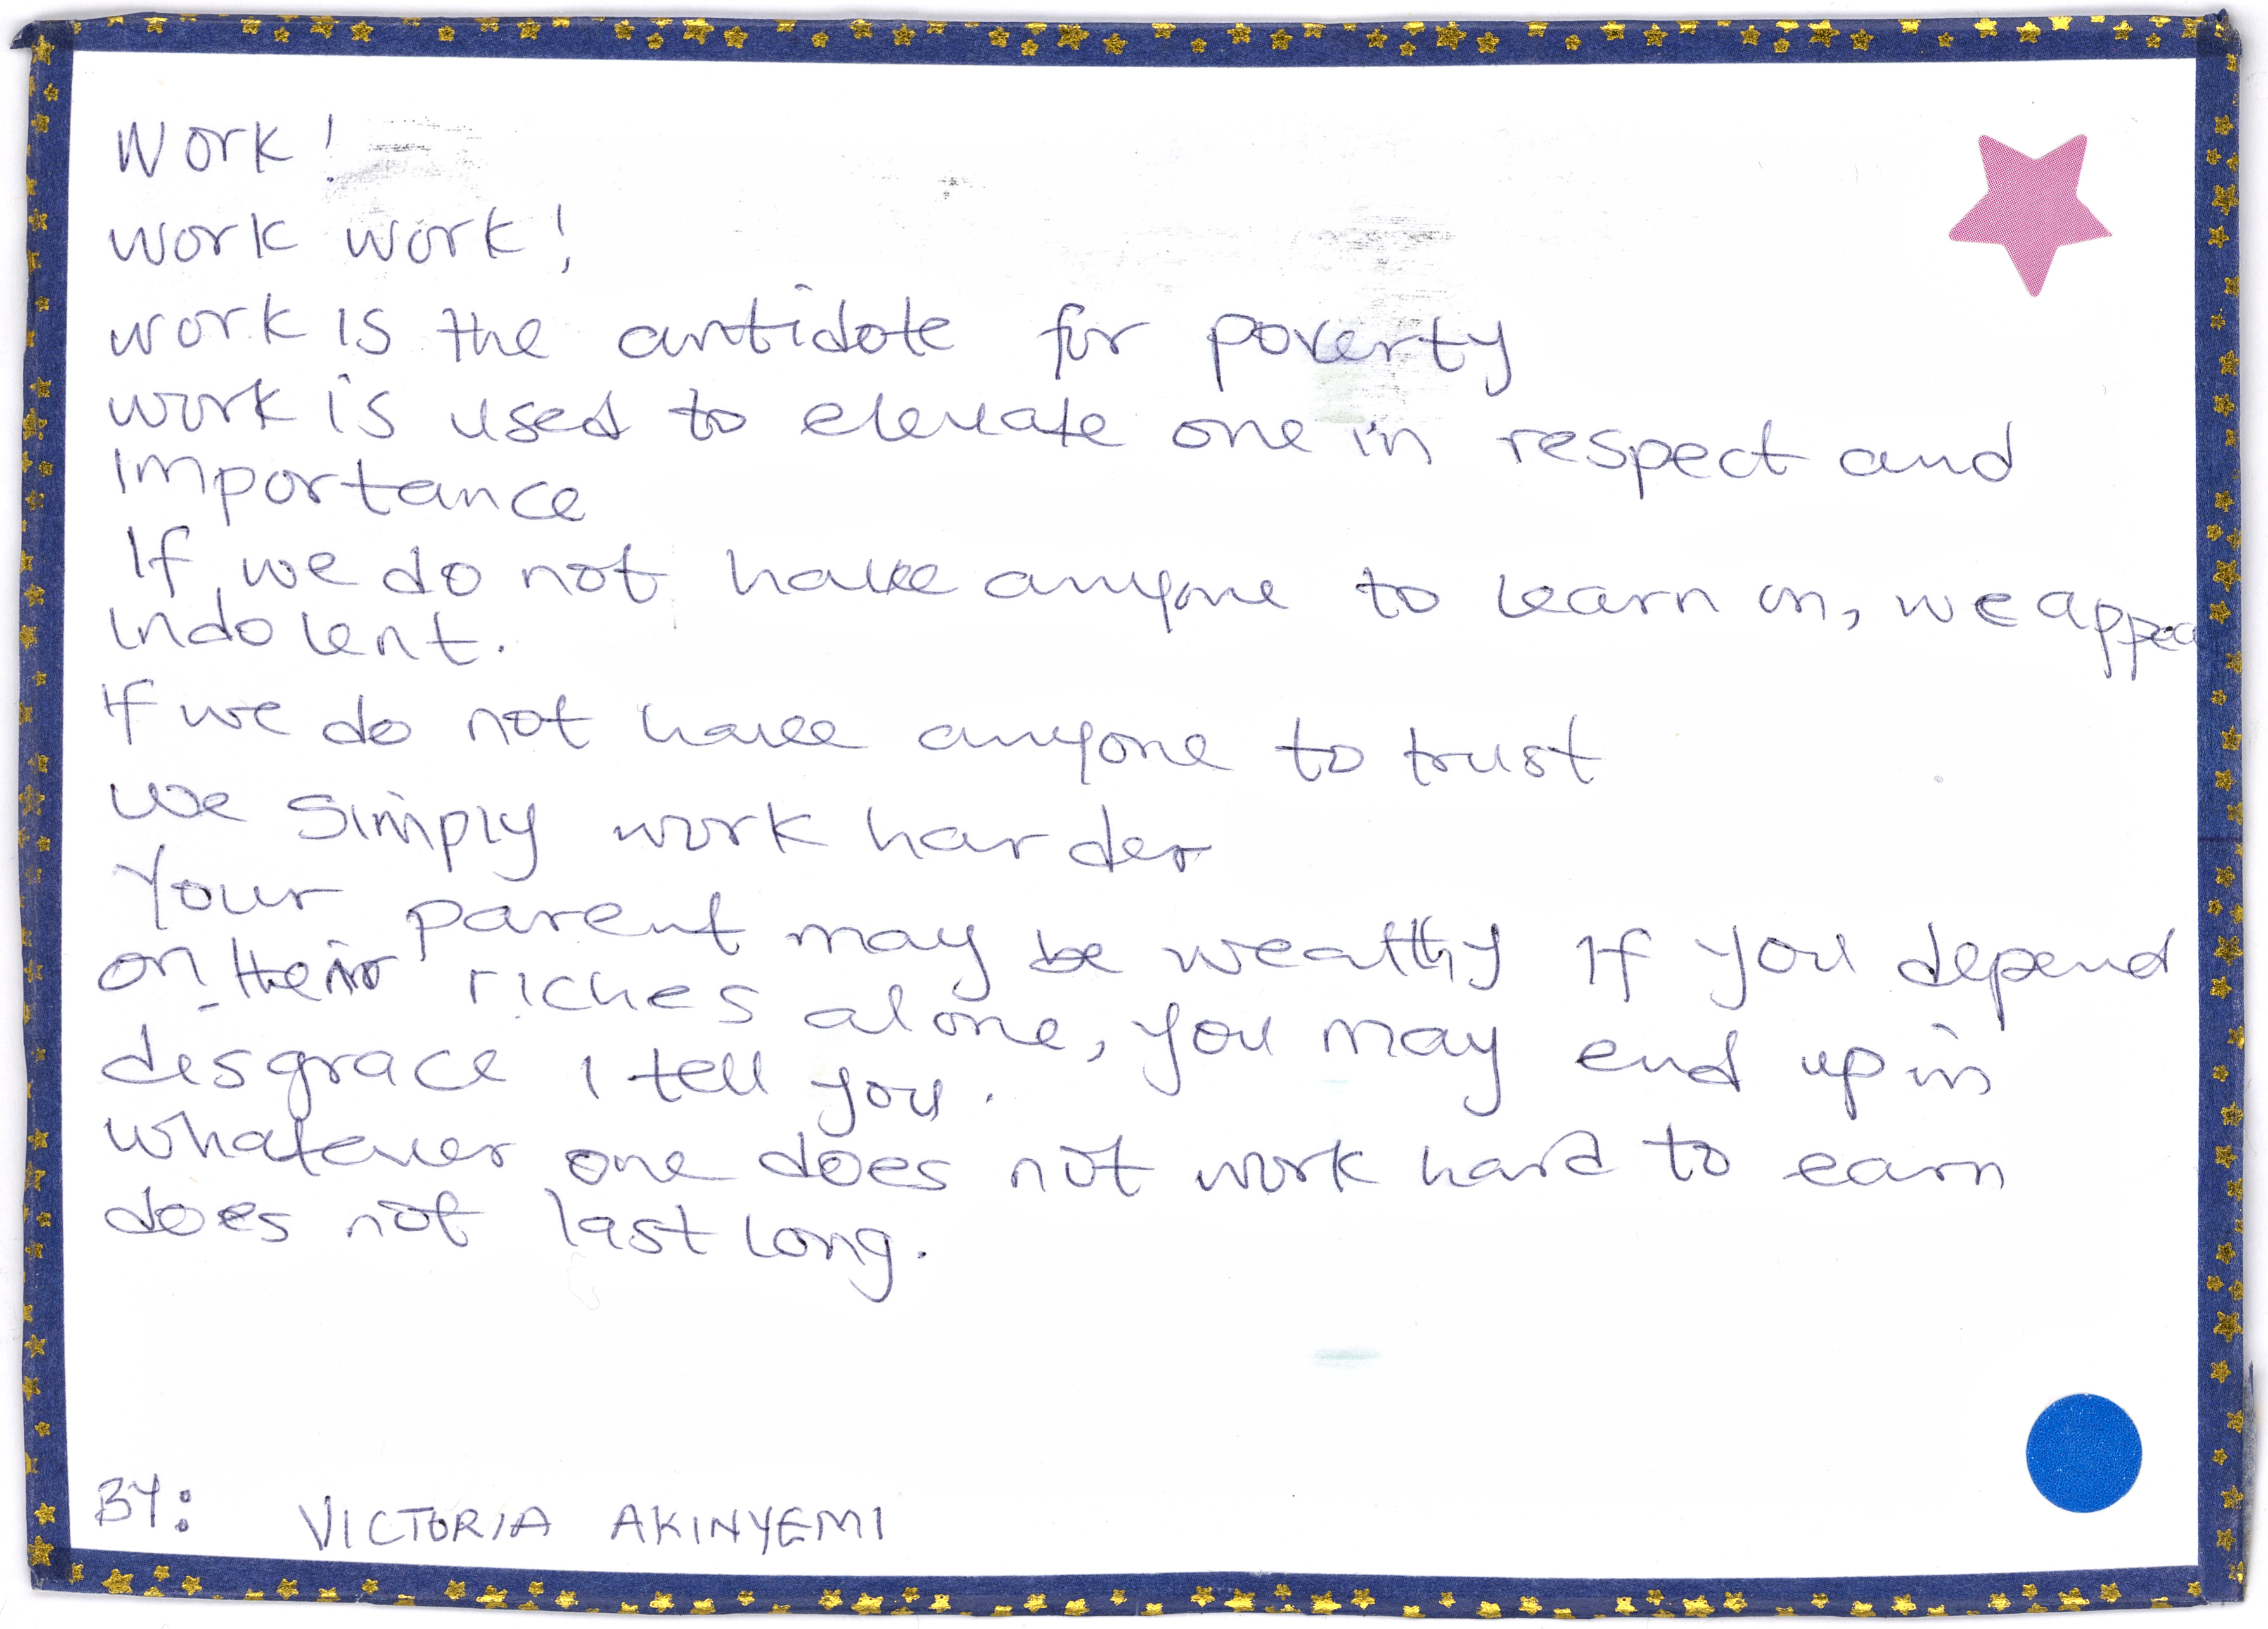 Work!
work work!
work is the antidote for poverty
work is used to elevate one in respect and
Importance
If we do not have anyone to learn on, we appea
Indolent.
If we do not have anyone to trust
we simply work harder
Your parent may be wealthy If you depend
on their riches alone, you may end up in
disgrace I tell you.
whatever one does not work hard to earn
does not last long.
BY: VICTORIA AKINYEMI